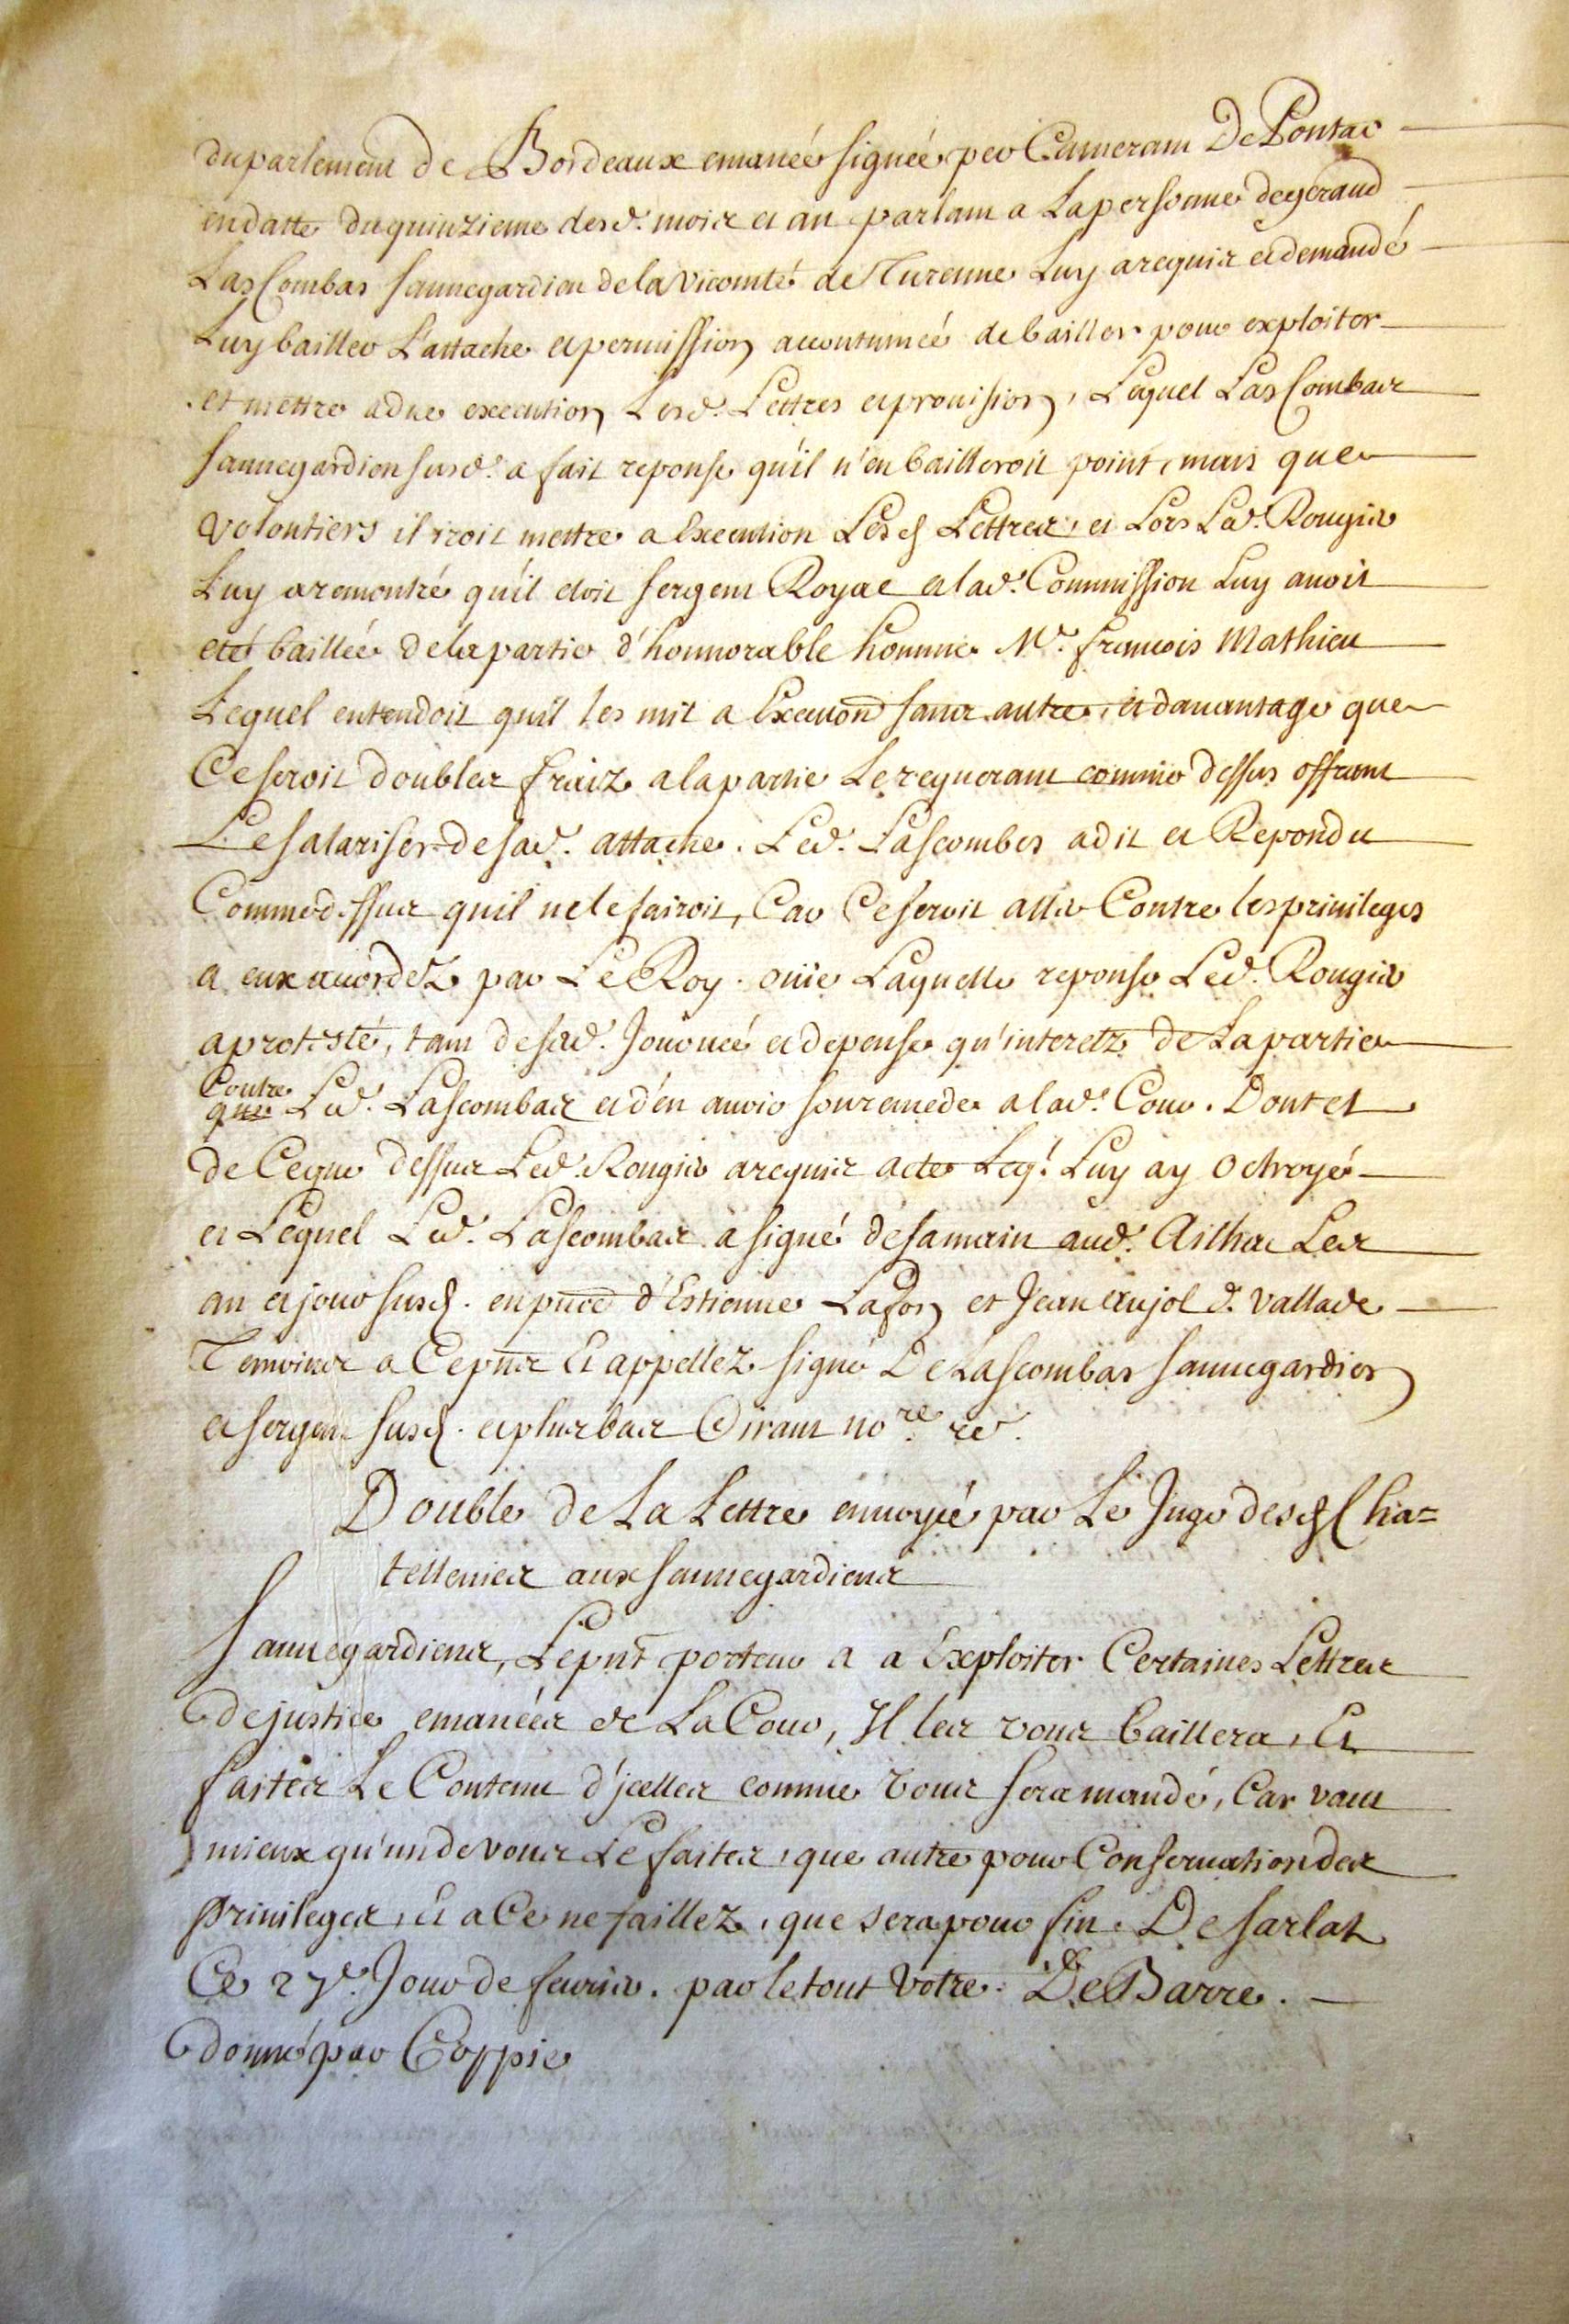 du parlement de Bordeaux emanée signée per Cameram De Pontac
en datte du quinzieme desd. mois et an parlant a La personne de geraud
Las Combas sauvegardien de la vicomté de Turenne Luy a requis et demandé
Luy bailler L'attache et permission accoutumée de bailler pour exploiter
et mettre a due execution Lesd. Lettres et provision, Lequel Las Combas
sauvegardien susd. a fait reponse qu'il n'en bailleroit point, mais que
volontiers il iroit mettre a Execution Lesd Lettres, et Lors Led. Rougier
Luy a remontré qu'il etoit sergent Royal et lad. Commission Luy avoit
eté baillée de la partie d'honnorable homme Mr. francois Mathieu
Lequel entendoit qu'il les mit a Execuon sans autre, et davantage que
Ce seroit doubler fraiz a la partie Le requerant comme dessus offrant
Le salariser de sad. attache. Led. Lascombes a dit et Repondu
Comme dessus quil ne le fairoit, Car Ce seroit aller Contre les privileges
a eux accordez par Le Roy. ouie Laquelle reponse Led. Rougier
a protesté, tant de sad. Journée et depense qu'interetz de La partie
Contre
que Led. Lascombas et d'en avoir son remede a lad. Cour. Dont et
de Ceque dessus Led. Rougier a requis acte Leq! Luy ay octroyé
et Lequel Led. Lascombas a signé de sa main aud. Ailhac Les
an et jour susd. en pnce d'Estienne Lafon et Jean aujol d. vallade
Temoins a Ce pns Et appellez signé De Lascombas sauvegardien
et sergent susd. et plus bas Dirant nore. rd.
Double de La Lettre envoyée par Le Juge desd Cha=
tellenies aux sauvegardiens
Sauvegardiens, Le pnt porteur a a Exploiter Certaines Lettres
De justice emanées de La Cour, Il les vous baillera, Et
faites Le Contenu d'jcelles comme vous sera mandé, Car vaut
mieux qu'un de vous Le faites, que autre pour Conservation des
privileges, Et a Ce ne faillez, que sera pour fin. De sarlat
Ce 27e. Jour de fevrier. par le tout votre. De Barre.
donné par Coppie